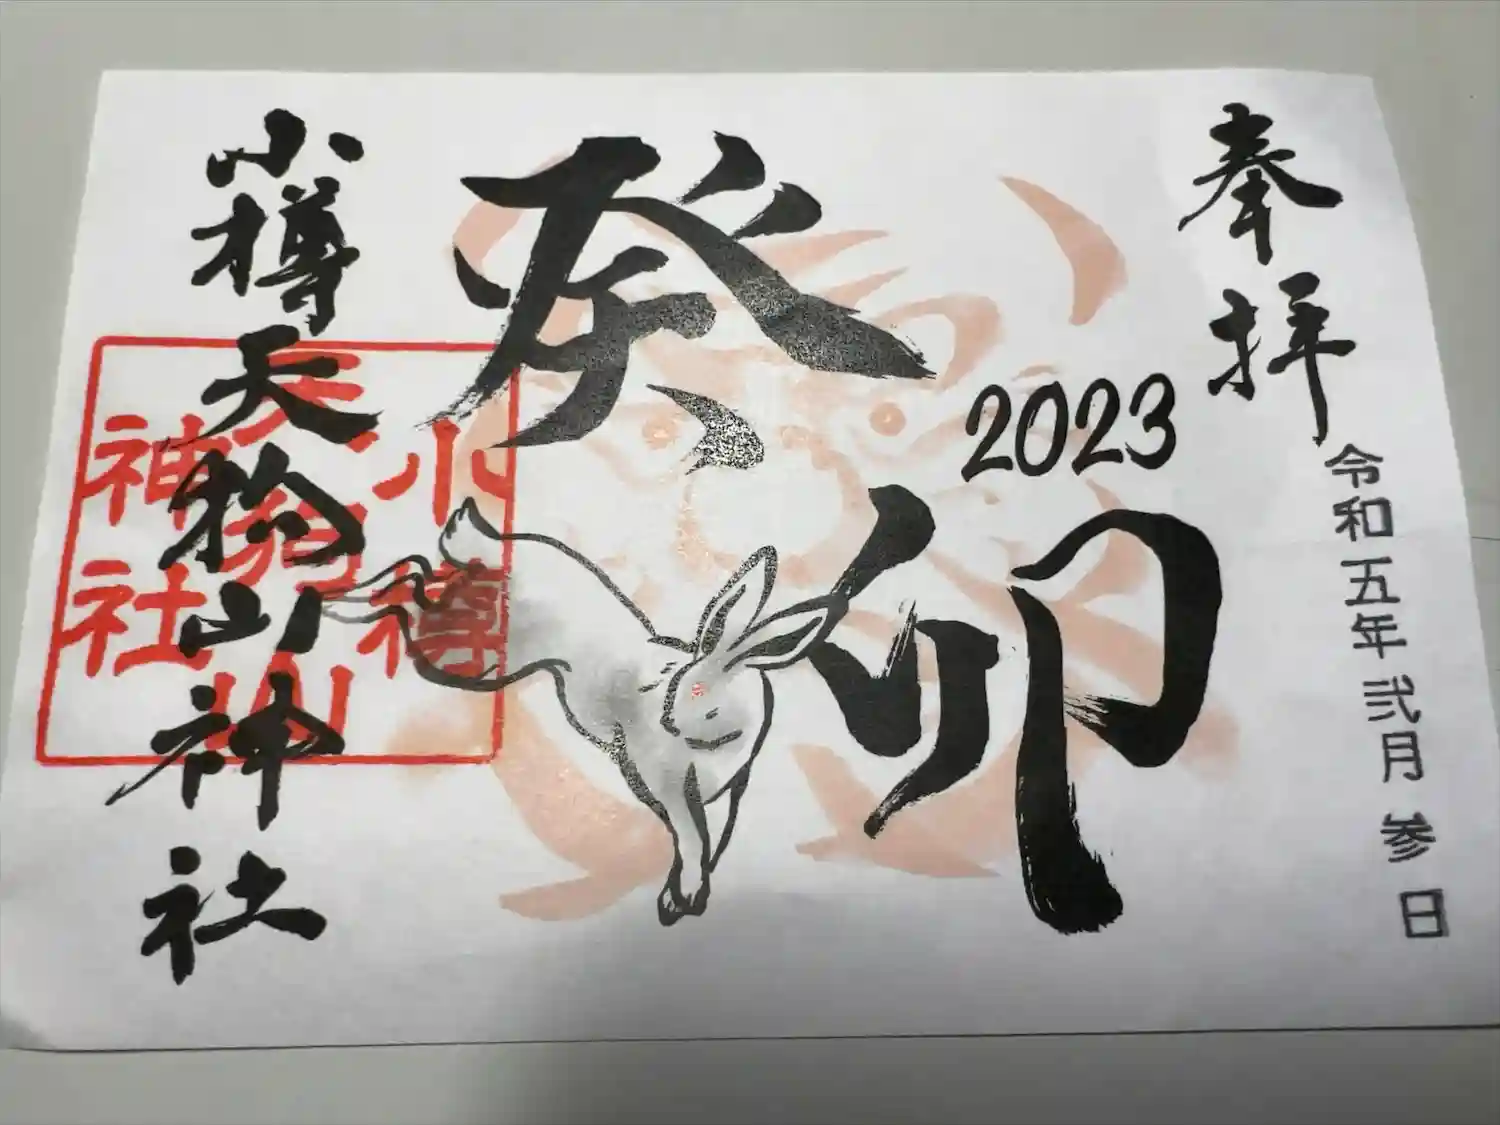 奉拝
令和五年 弐月 参 日
2023
癸
卯
小樽天狗山神社
小樽
天狗山
神社